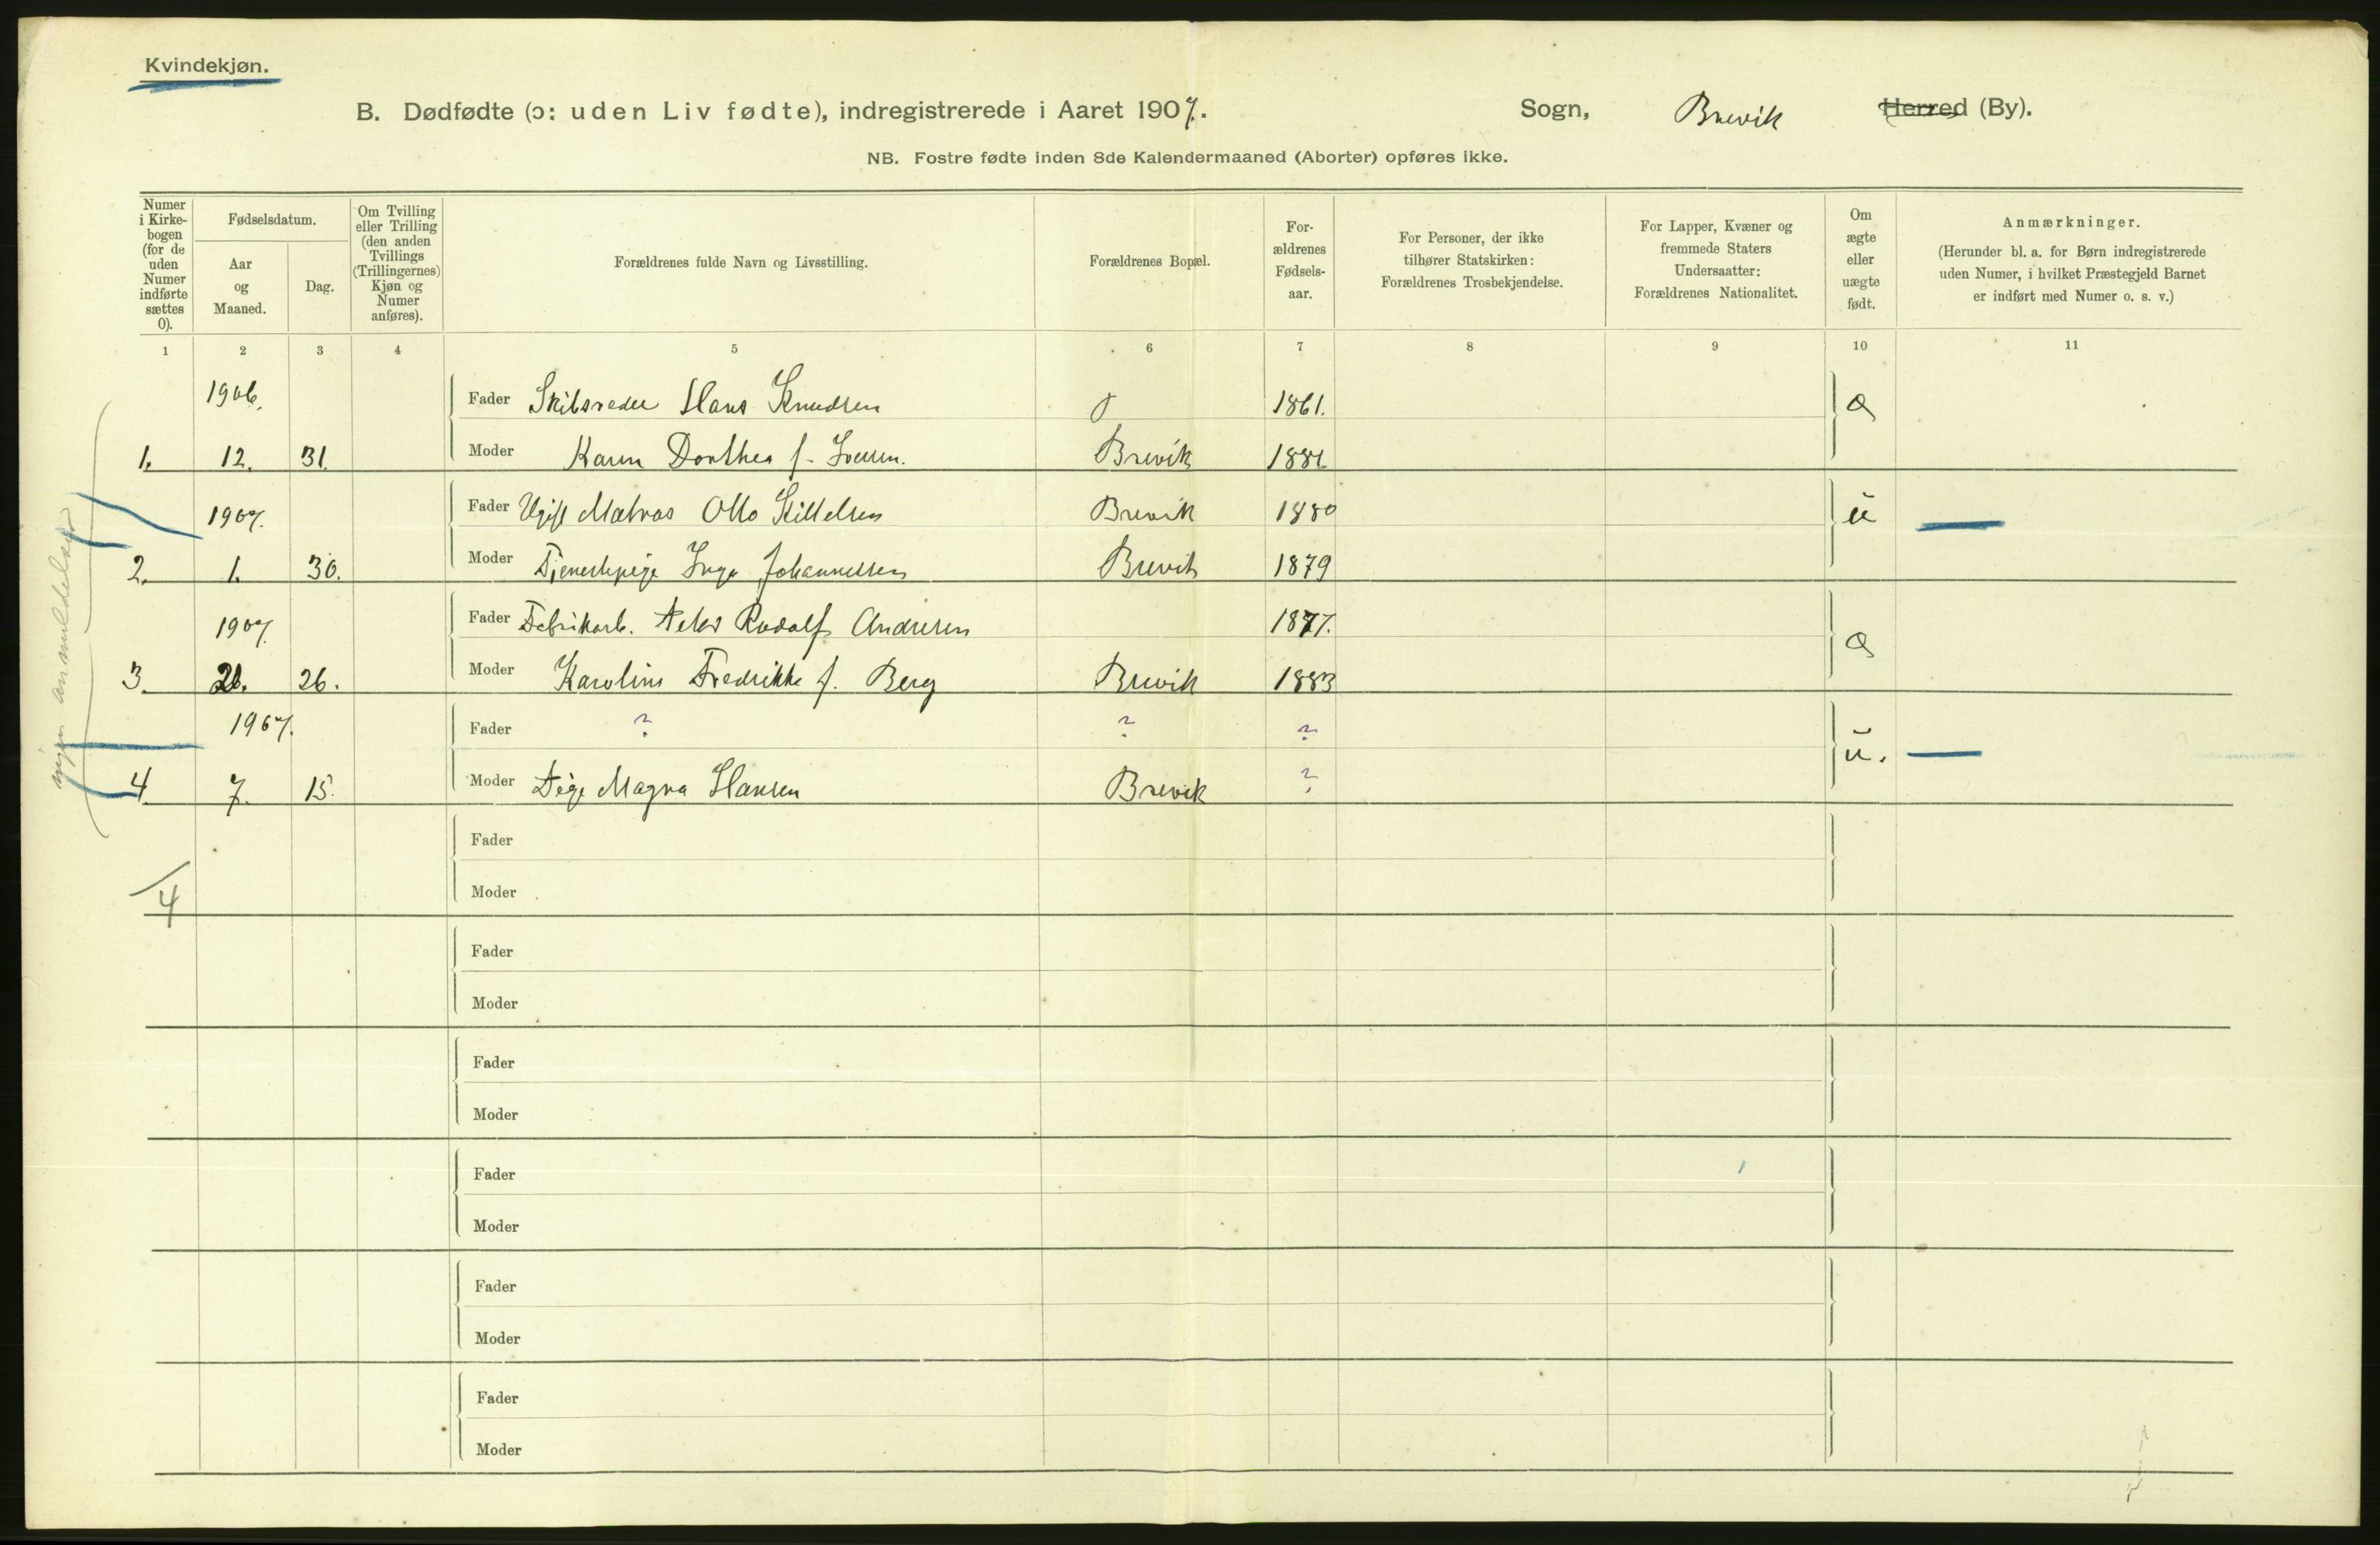 Kvindekjøn.
B. Dødfødte (ɔ: uden Liv fødte), indregistrerede i Aaret 1907. Sogn, Brevik Herred (By).
NB. Fostre fødte inden 8de Kalendermaaned (Aborter) opføres ikke.
Numer i Kirkebogen (for de uden Numer indførte sættes 0).
Fødselsdatum.
Aar og Maaned.
Dag.
Om Tvilling eller Trilling (den anden Tvillings (Trillingernes) Kjøn og Numer anføres).
Forældrenes fulde Navn og Livsstilling.
Forældrenes Bopæl.
Forældrenes Fødselsaar.
For Personer, der ikke tilhører Statskirken: Forældrenes Trosbekjendelse.
For Lapper, Kvæner og fremmede Staters Undersaatter: Forældrenes Nationalitet.
Om ægte eller uægte født.
Anmærkninger.
(Herunder bl. a. for Børn indregistrerede uden Numer, i hvilket Præstegjeld Barnet er indført med Numer o. s. v.)
1 2 3 4 5 6 7 8 9 10 11
1906. Fader Skibsreder Hans Knudsen 1861.
1. 12. 31. Moder Karen Dorthea f. Iversen. Brevik 1881
1907. Fader Ugift Matros Otto Kittelsen Brevik 1880 u
2. 1. 30. Moder Tjenestepige Inga Johannessen Brevik 1879
1907. Fader Fabrikarb. Peder Rudolf Andresen 1877.
3. 26. Moder Karoline Fredrikke f. Berg Brevik 1883
1907. Fader ? ? ? u.
4. 7. 15. Moder Pige Magna Hansen Brevik ?
Fader
4 Moder
Fader
Moder
Fader
Moder
Fader
Moder
Fader
Moder
Fader
Moder